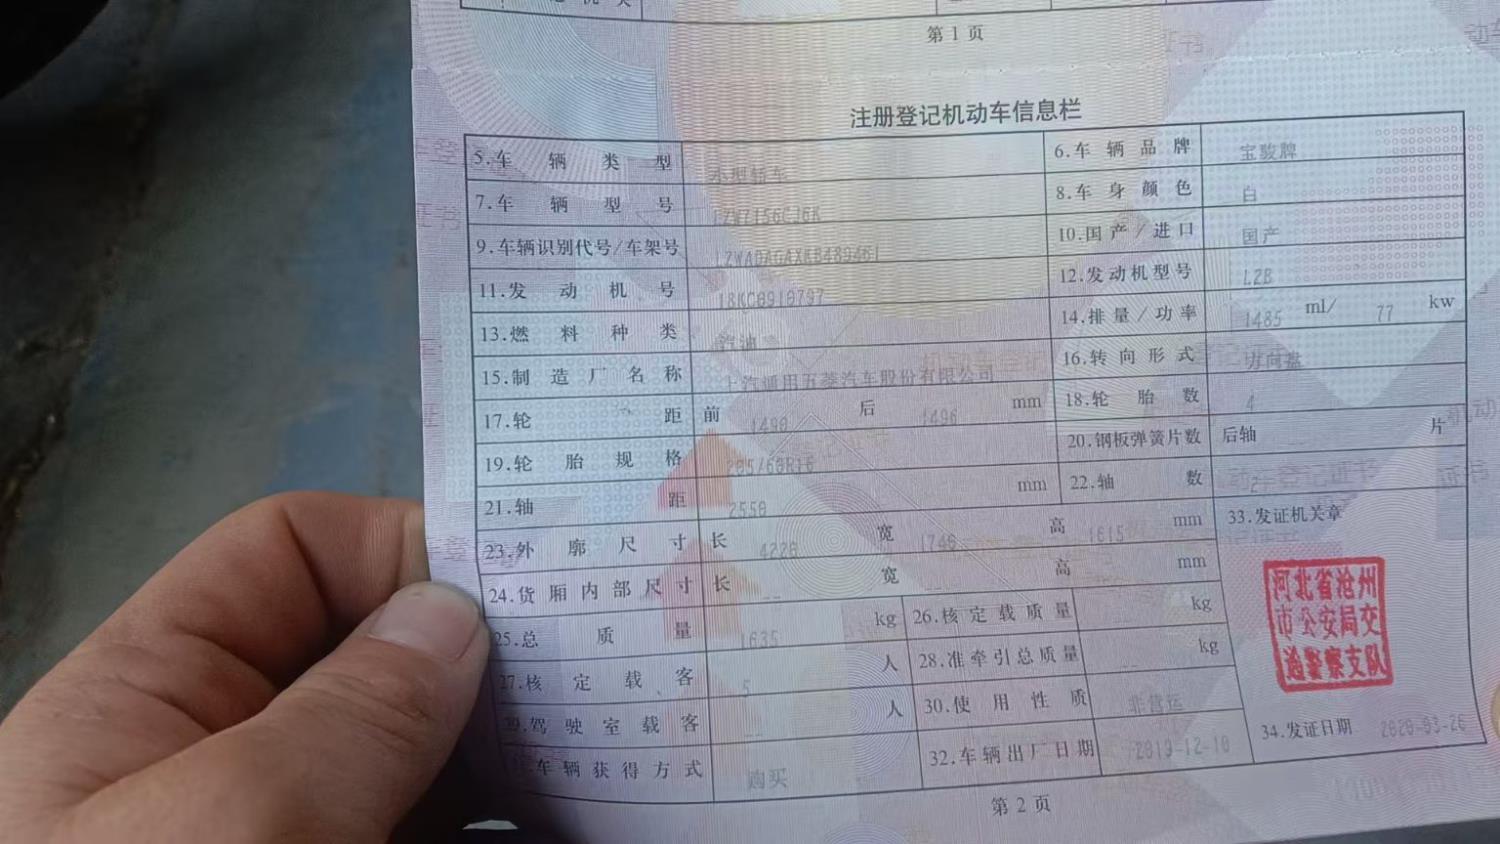 第 1 页
注册登记机动车信息栏
5.车辆类型 小型轿车 6.车辆品牌 宝骏牌
7.车辆型号 8.车身颜色 白
9.车辆识别代号/车架号 10.国产/进口 国产
11.发动机号 12.发动机型号 L2B
13.燃料种类 汽油 14.排量/功率 1485 ml/ 77 kw
15.制造厂名称 上汽通用五菱汽车股份有限公司 16.转向形式 方向盘
17.轮距 前 1490 后 1496 mm 18.轮胎数 4
19.轮胎规格 205/60R16 20.钢板弹簧片数 后轴 片
21.轴距 2550 mm 22.轴数 2
23.外廓尺寸 长 4220 宽 1740 高 1615 mm 33.发证机关章
24.货厢内部尺寸 长 -- 宽 高 mm
25.总质量 1635 kg 26.核定载质量 kg
27.核定载客 5 人 28.准牵引总质量 -- kg
驾驶室载客 -- 人 30.使用性质 非营运
车辆获得方式 购买 32.车辆出厂日期 2019-12-10
河北省沧州
市公安局交
通警察支队
34.发证日期 2020-03-26
第 2 页